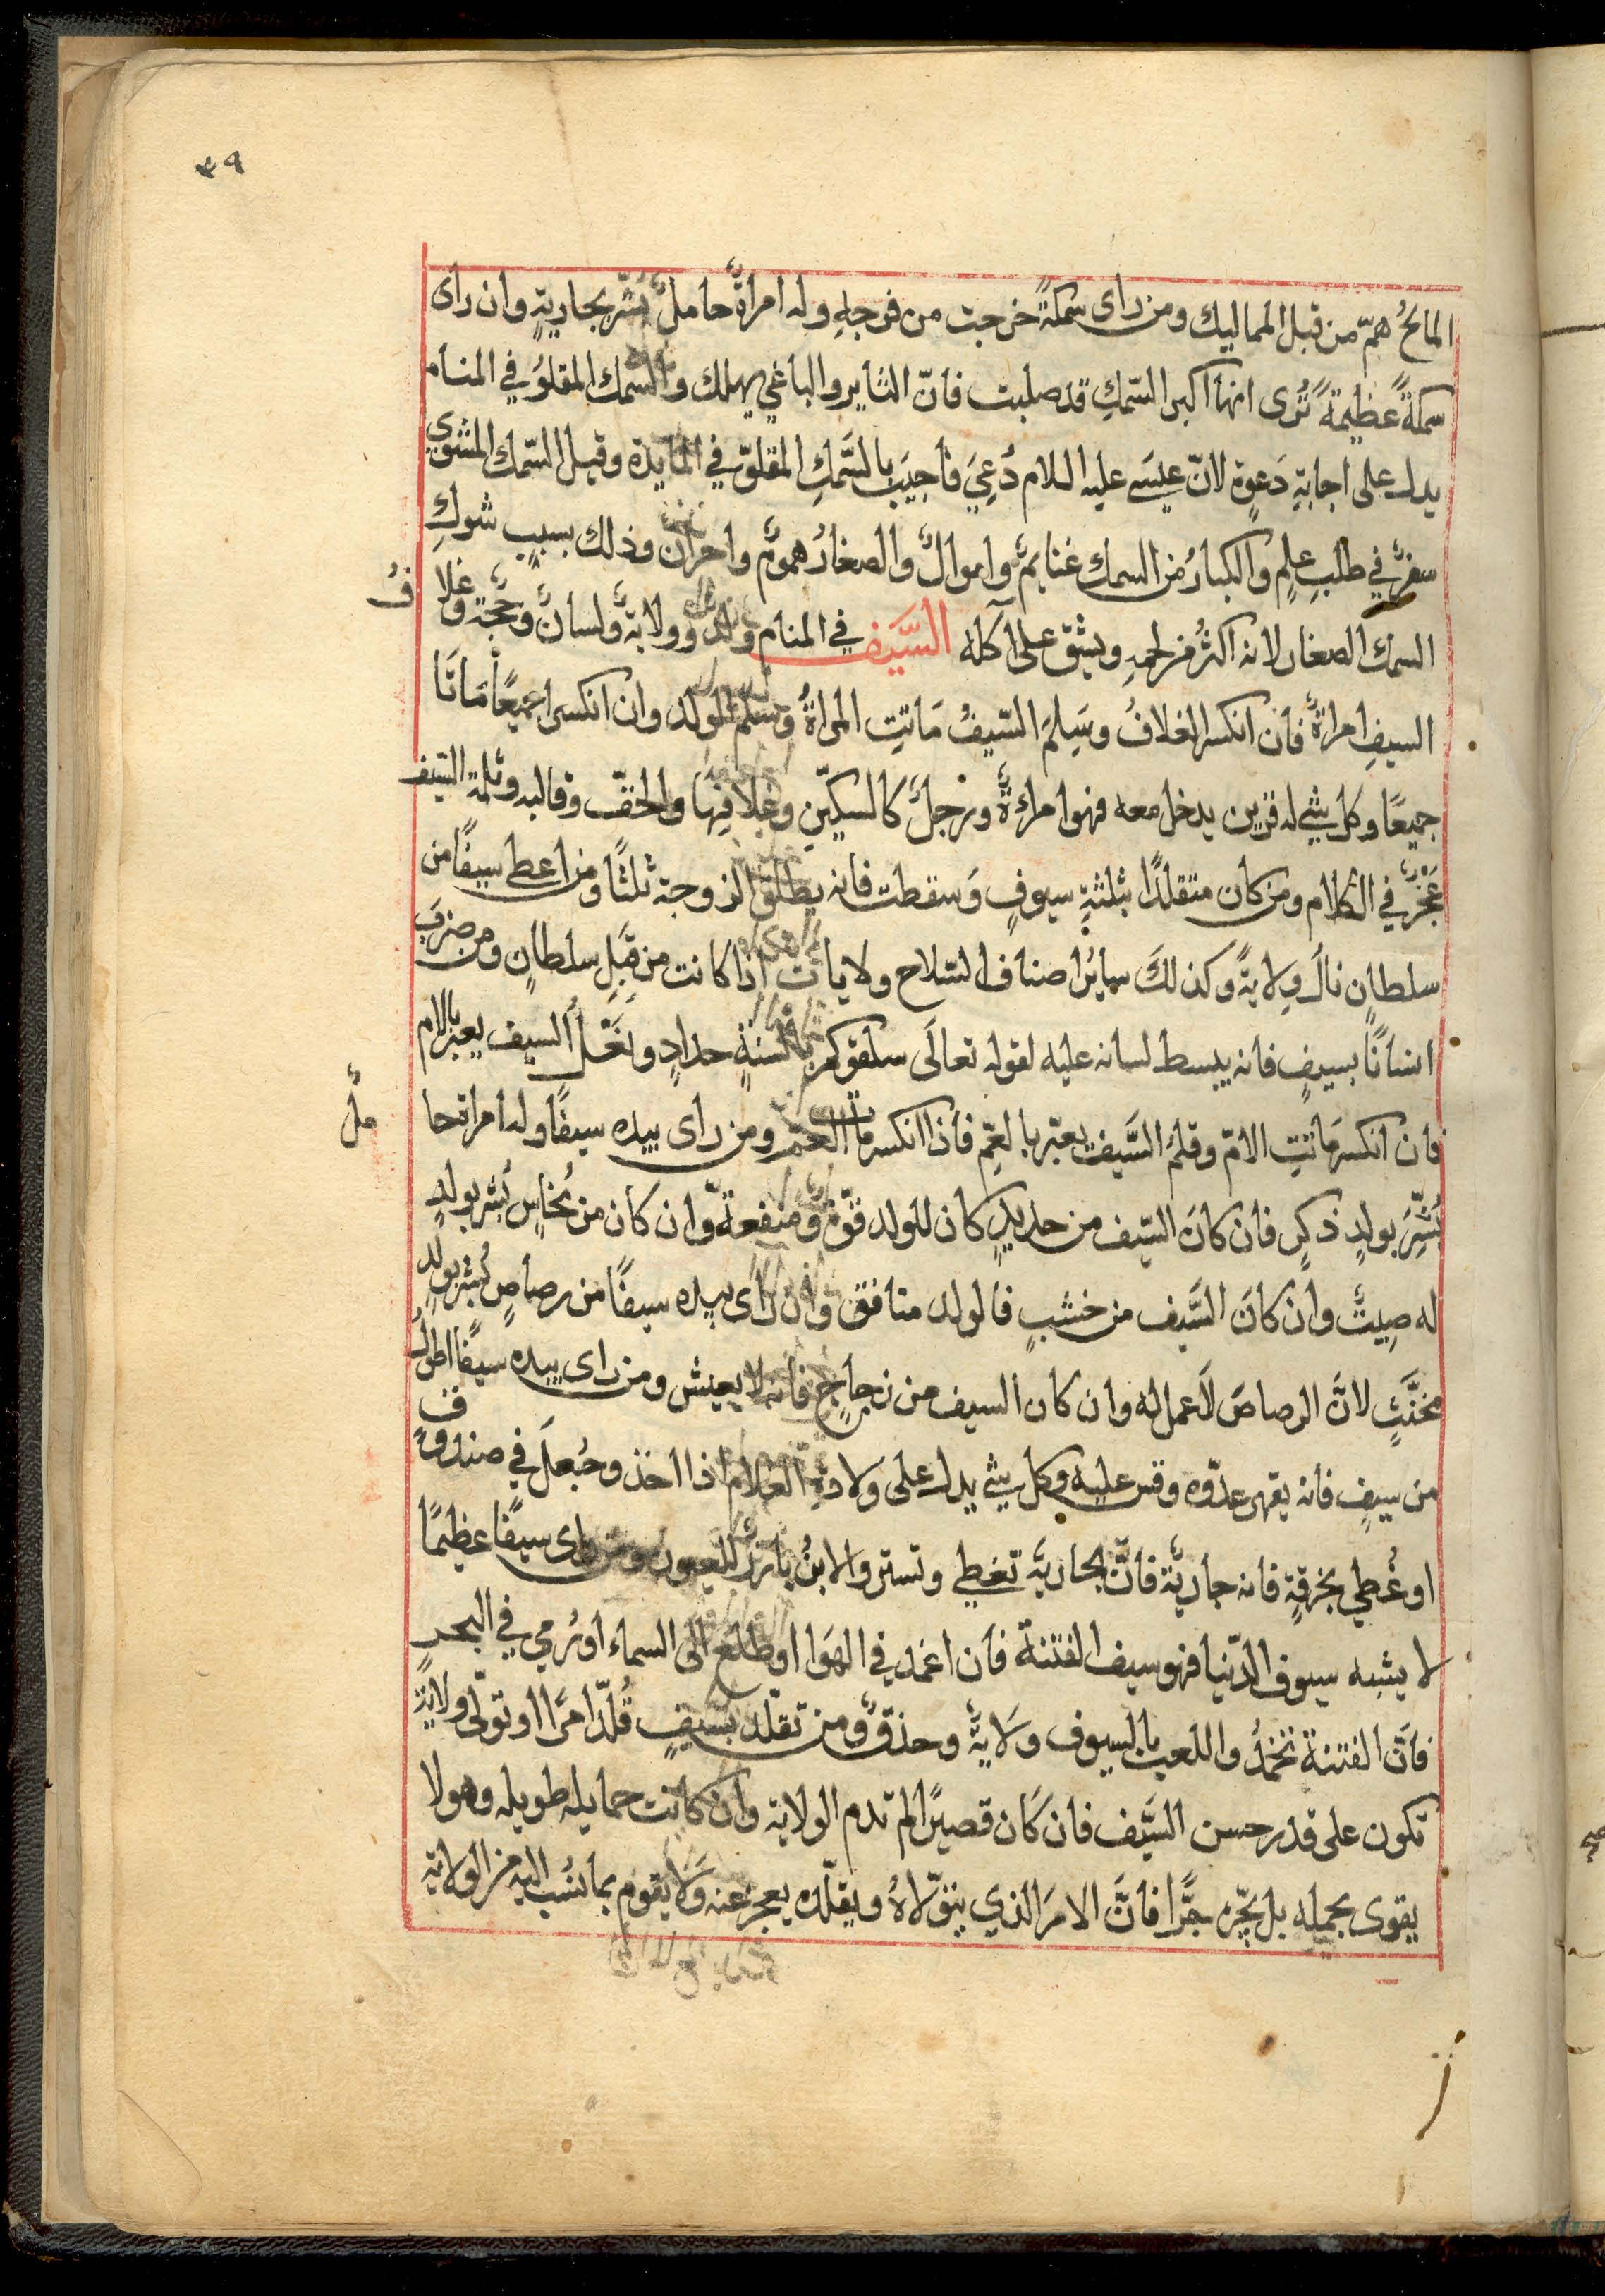 ٣٩
المالحُ همّ من قبل المماليك ومن راى سمكةً خرجت من فرجهِ وله امراةٌ حاملٌ بُشّر بجاريةٍ وان راى
سمكةً عظيمةً تُرى انها اكبر السّمكِ قد صلبت فانّ الثاير والباغي يهلك والسّمك المقلوُ في المنام
يدل على اجابةِ دَعوةٍ لانّ عيسَى عليه السلام دُعِيَ فاجيَب بالسَّمكِ المقلوّ في المايدة وقيل السّمك المشوي
سفرٌ في طلبِ علمٍ والكبارُ من السمك غنايمٌ واموالٌ والصغارُ همومٌ واحزان وذلك بسببِ شوكِ
السمك الصغار لانه اكثرُ من لحمهِ ويشقّ على آكله السَّيَف في المنام ولدٌ وولايةٌ ولسانٌ وحُجّة وغلافُ
السيفِ امراةٌ فان انكسر الغلافُ وسَلِمَ السّيفُ مَاتتِ المراةُ وسلم الولد وان انكسرا جميعًا مَاتَا
جميعًا وكل شيٍ له قرين يدخل معه فهو امراةٌ ورجلٌ كالسكّين وغلافِهَا والحقّ وقالبه وثلمة السّيف
عَجْزٌ في الكلام ومن كان متقلدًا بثلثةِ سيوفٍ وَسقطت فانه يطلق الزوجة ثلثًا ومن اعطى سيفًا من
سلطانٍ نالَ وِلايةً وكذلكَ سايرُ اصناف السّلاح ولاياتٌ اذا كانت من قبَلِ سلطانٍ ومن ضرَبَ
انسانًا بسيفٍ فانه يبسط لسانه عليه لقوله تعالَى سلقوكم بالسنةٍ حدادٍ ونَعْلُ السيف يعبر بالام
فان انكسر مَاتتِ الامّ وقائمُ السَّيف يعبّر بالعمِّ فاذا انكسر مات العمّ ومن راى بيده سيفًا وله امراة حاملٌ
بُشِّرَ بولدٍ ذكرٍ فان كانَ السّيف من حديدٍ كان للولد قوّة ومنفعةٌ وان كان من نُحاسٍ بُشر بولدٍ
له صِيتٌ وان كانَ السَّيف من خشبٍ فالولد منافق وان راى بيده سيفًا من رصاصٍ بُشر بولدٍ
مخنَّثٍ لانَّ الرصاصَ لَا عمل له وان كان السيف من زجاجٍ فانه لا يعيش ومن راى بيده سيفًا اطولُ
من سيفٍ فانه يقهر عدّوه وقس عليه وكل شي يدل على وَلادةِ الغلام اذا اخذ وجُعلَ في صندوقٍ
او غُطي بخرقةٍ فانه جاريةٌ فانَّ الجاريةٌ تغطي وتستر والابنُ بارزٌ للعيون ومن راى سيفًا عظيمًا
لا يشبه سيوف الدّنيا فهو سيف الفتنة فان اغمد في الهَوا او طلعَ الى السماء او رُمي في البحرِ
فانَّ الفتنة تخمدُ واللعب بالسيوف وَلايةٌ وحذقٌ ومن تقلّد بسيفٍ قُلّد امرًا او تولّى ولايةً
تكون على قدر حسن السَّيف فان كَان قصيرًا لم تدم الولاية وان كانت حمايله طويله وهو لا
يقوى بحمله بل يجّره جرًّا فانَّ الامرَ الذي يتوّلاهُ ويقلّده يعجز عنه وَلا يقوم بما نسُب اليه من الولاية